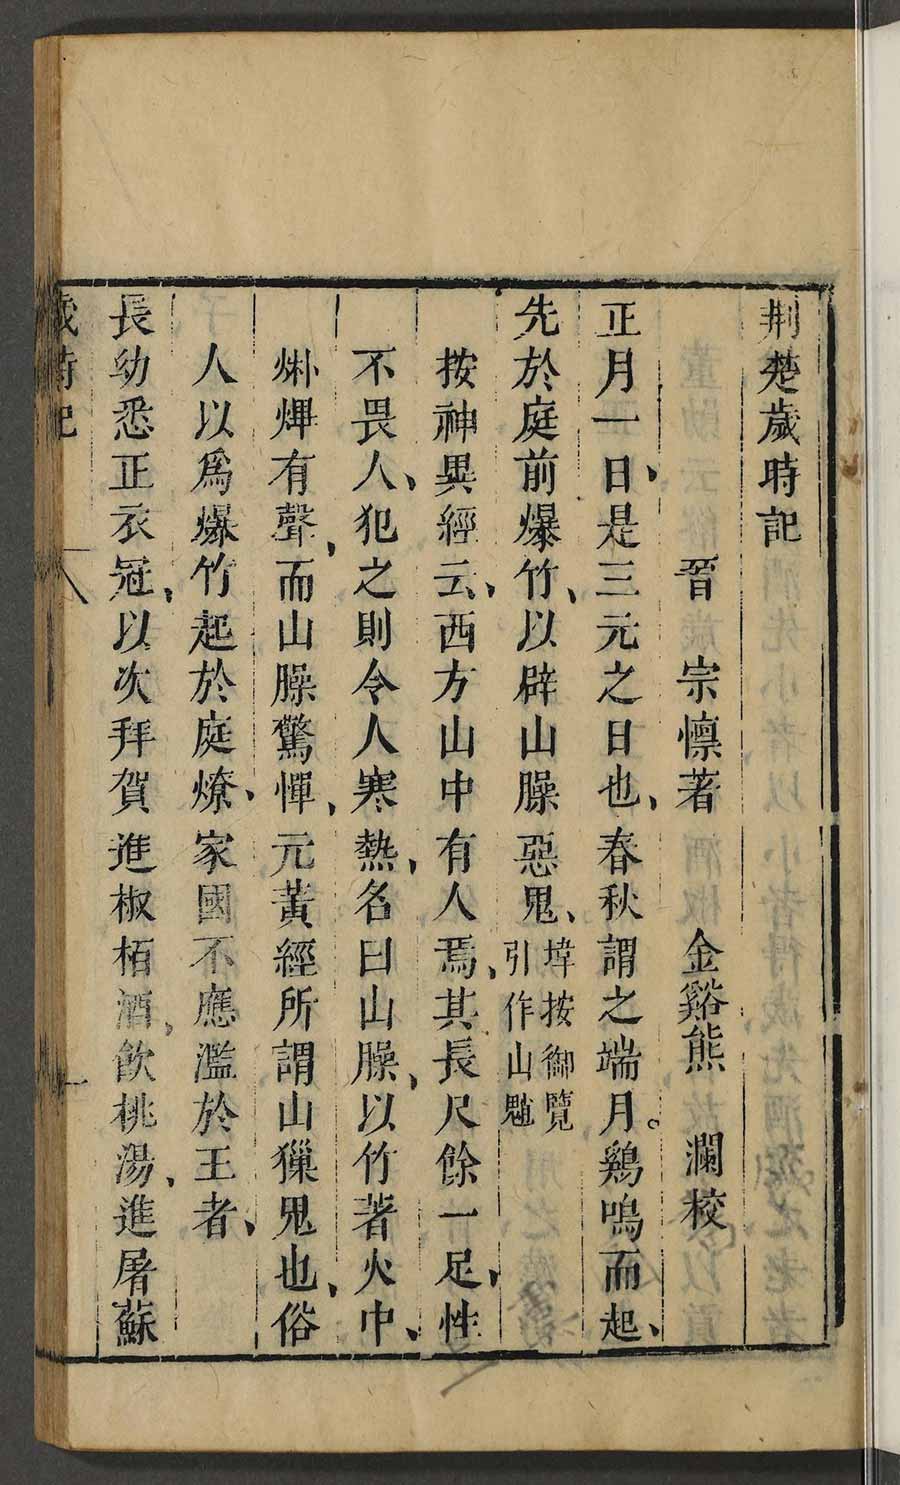 荆楚歲時記
晉　宗懍著　金谿熊　澜校
正月一日、是三元之日也、春秋謂之端月。鷄鳴而起、
先於庭前爆竹、以辟山臊惡鬼、
埲按御覽
引作山魈
按神異經云、西方山中有人焉、其長尺餘一足、性
不畏人、犯之則令人寒熱、名曰山臊、以竹著火中、
烞熚有聲、而山臊驚憚、元黃經所謂山獵鬼也、俗
人以爲爆竹起於庭燎、家國不應濫於王者、
長幼悉正衣冠、以次拜賀進椒栢酒、飲桃湯、進屠蘇
歲時記
一